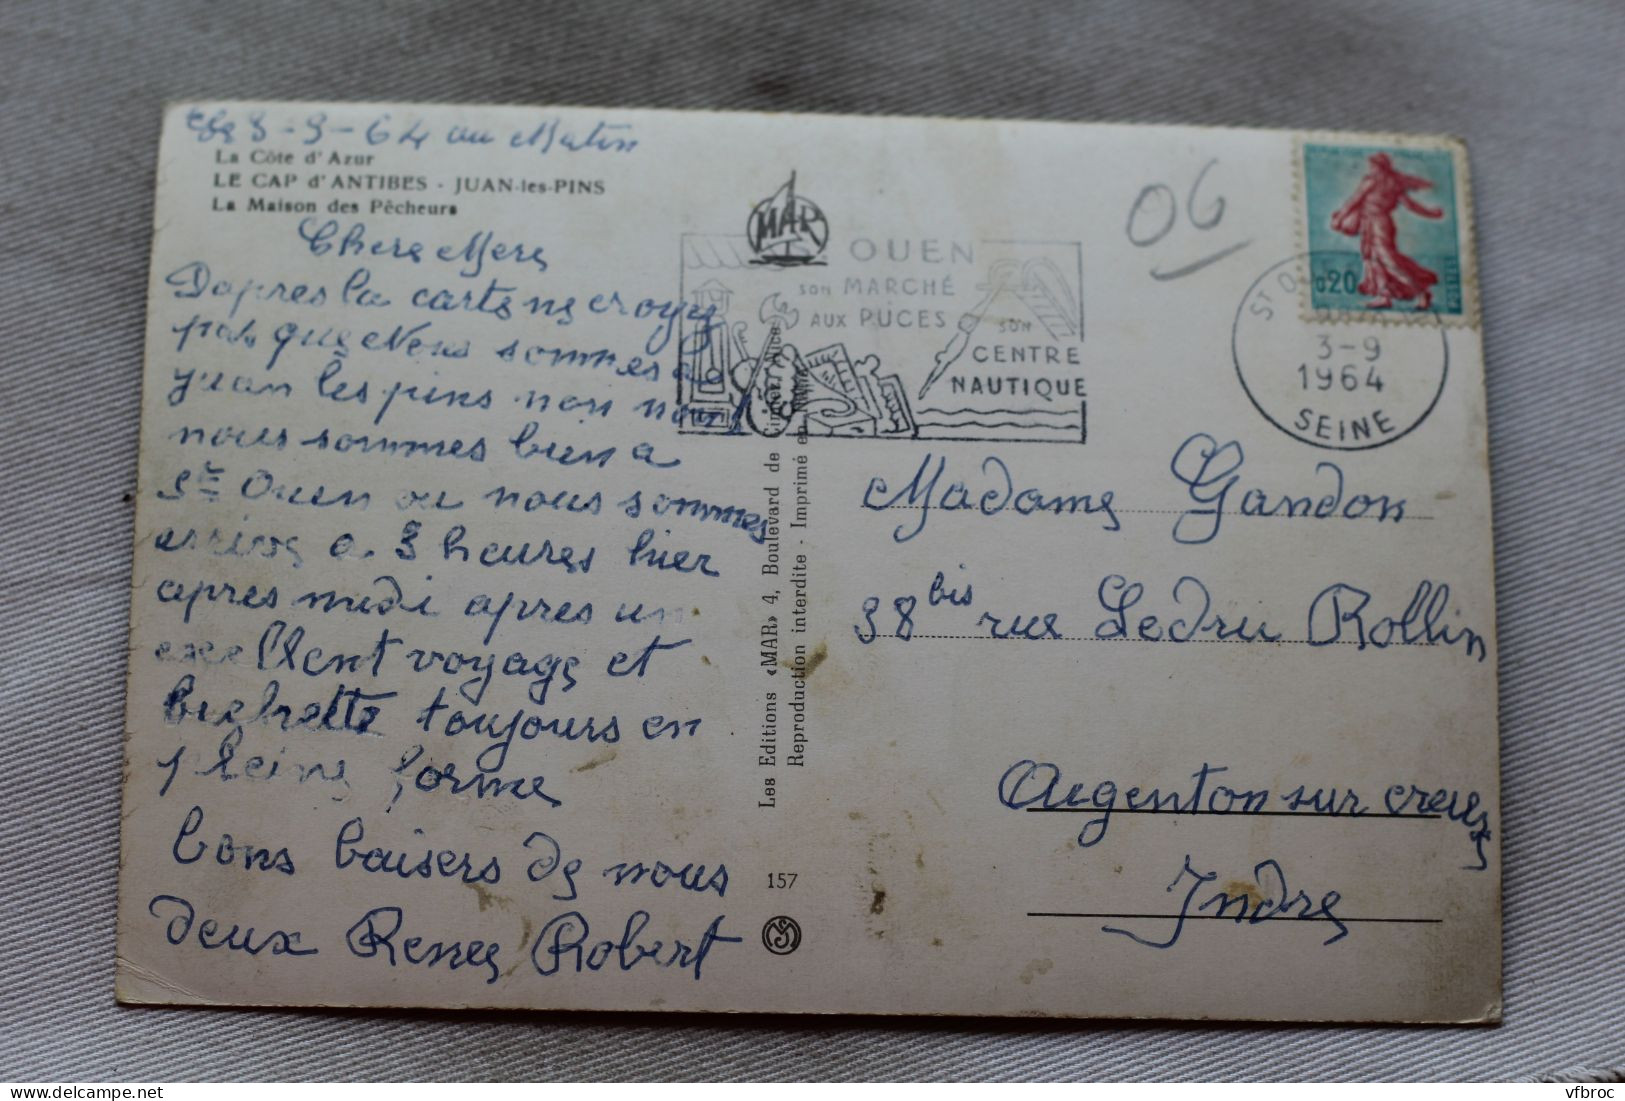 8-9-64 au Matin
La Côte d'Azur
LE CAP d'ANTIBES - JUAN-les-PINS
La Maison des Pêcheurs
Chere Mere
Dapres la carte ne croyez
pas que Nous sommes a
juan les pins non
nous sommes bien a
St Ouen ou nous sommes
arrive a 3 heures hier
apres midi apres un
excellent voyage et
toujours en
pleine forme
bons baisers de nous
deux Renee Robert
MAR
Les Editions «MAR» 4, Boulevard de Cimiez, Nice
Reproduction interdite - Imprimé en
157
OUEN
son MARCHÉ
AUX PUCES
SON
CENTRE
NAUTIQUE
06
0,20
ST
3-9
1964
SEINE
Madame Gandon
38 bis rue Ledru Rollin
Argenton sur creuse
Indre
vfbroc